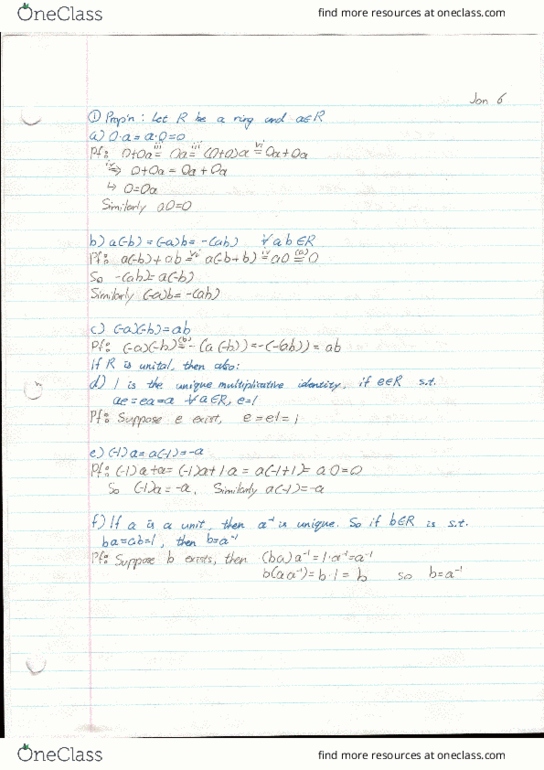 OneClass find more resources at oneclass.com
Jan 6
① Prop'n: Let R be a ring and a∈R
a) 0·a = a·0 = 0
Pf: 0+0a = 0a = (0+0)a = 0a+0a
⇒ 0+0a = 0a+0a
⇒ 0=0a
Similarly a0=0
b) a(-b) = (-a)b = -(ab) ∀ a,b∈R
Pf: a(-b)+ab = a(-b+b) = a0 = 0
So -(ab) = a(-b)
Similarly (-a)b = -(ab)
c) (-a)(-b) = ab
Pf: (-a)(-b) = -(a(-b)) = -(-(ab)) = ab
If R is unital, then also:
d) 1 is the unique multiplicative identity, if e∈R s.t.
ae=ea=a ∀a∈R, e=1
Pf: Suppose e exist, e = e1 = 1
e) (-1)a = a(-1) = -a
Pf: (-1)a+a = (-1)a+1a = a(-1+1) = a0 = 0
So (-1)a = -a, Similarly a(-1) = -a
f) If a is a unit, then a⁻¹ is unique. So if b∈R is s.t.
ba=ab=1, then b=a⁻¹
Pf: Suppose b exists, then (ba)a⁻¹ = 1·a⁻¹ = a⁻¹
b(aa⁻¹) = b·1 = b so b=a⁻¹
OneClass find more resources at oneclass.com